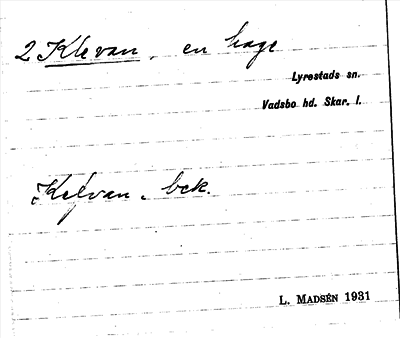 2 Klevan, en hage
Lyrestads sn.
Vadsbo hd. Skar. l.
bek.
L. MADSÉN 1931